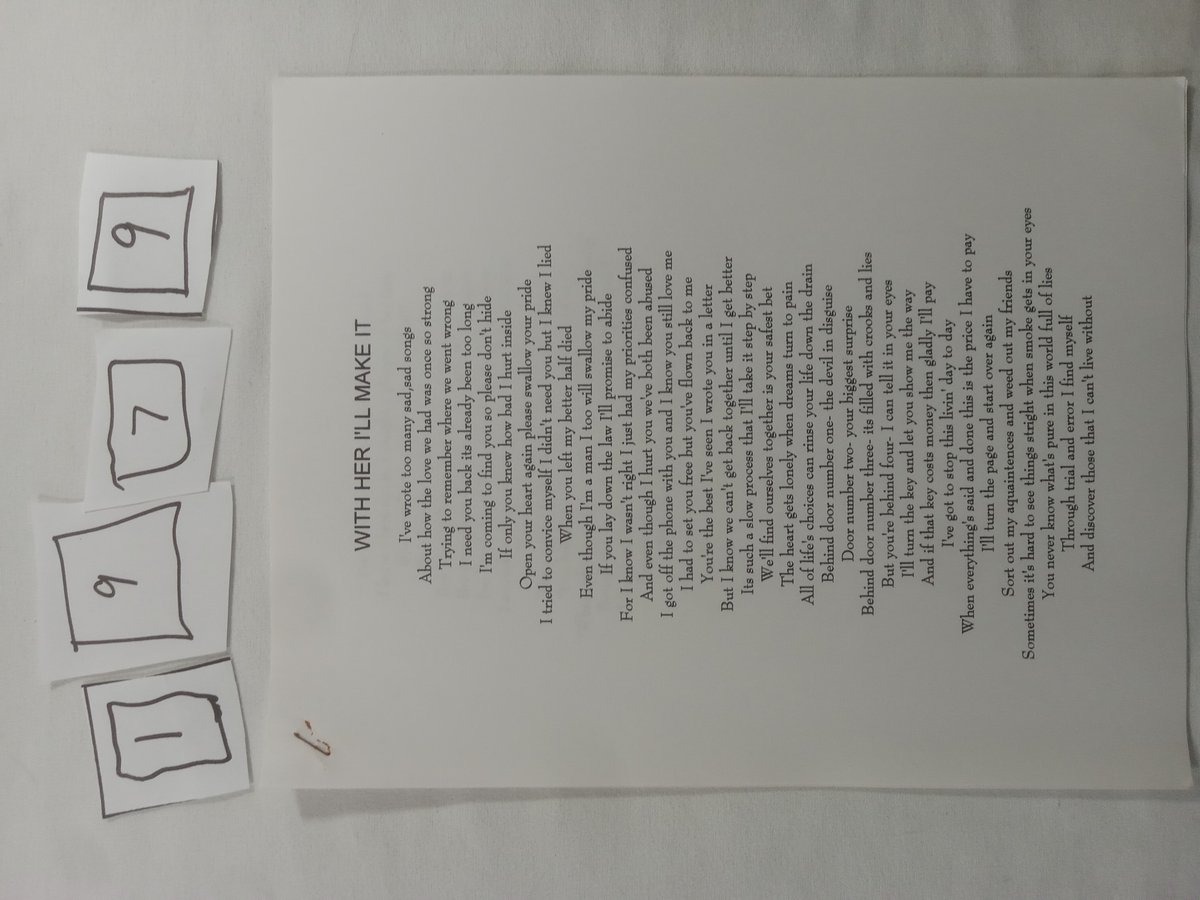 1 9 7 9
WITH HER I'LL MAKE IT
I've wrote too many sad,sad songs
About how the love we had was once so strong
Trying to remember where we went wrong
I need you back its already been too long
I'm coming to find you so please don't hide
If only you knew how bad I hurt inside
Open your heart again please swallow your pride
I tried to convice myself I didn't need you but I knew I lied
When you left my better half died
Even though I'm a man I too will swallow my pride
If you lay down the law I'll promise to abide
For I know I wasn't right I just had my priorities confused
And even though I hurt you we've both been abused
I got off the phone with you and I know you still love me
I had to set you free but you've flown back to me
You're the best I've seen I wrote you in a letter
But I know we can't get back together until I get better
Its such a slow process that I'll take it step by step
We'll find ourselves together is your safest bet
The heart gets lonely when dreams turn to pain
All of life's choices can rinse your life down the drain
Behind door number one- the devil in disguise
Door number two- your biggest surprise
Behind door number three- its filled with crooks and lies
But you're behind four- I can tell it in your eyes
I'll turn the key and let you show me the way
And if that key costs money then gladly I'll pay
I've got to stop this livin' day to day
When everything's said and done this is the price I have to pay
I'll turn the page and start over again
Sort out my aquaintences and weed out my friends
Sometimes it's hard to see things stright when smoke gets in your eyes
You never know what's pure in this world full of lies
Through trial and error I find myself
And discover those that I can't live without